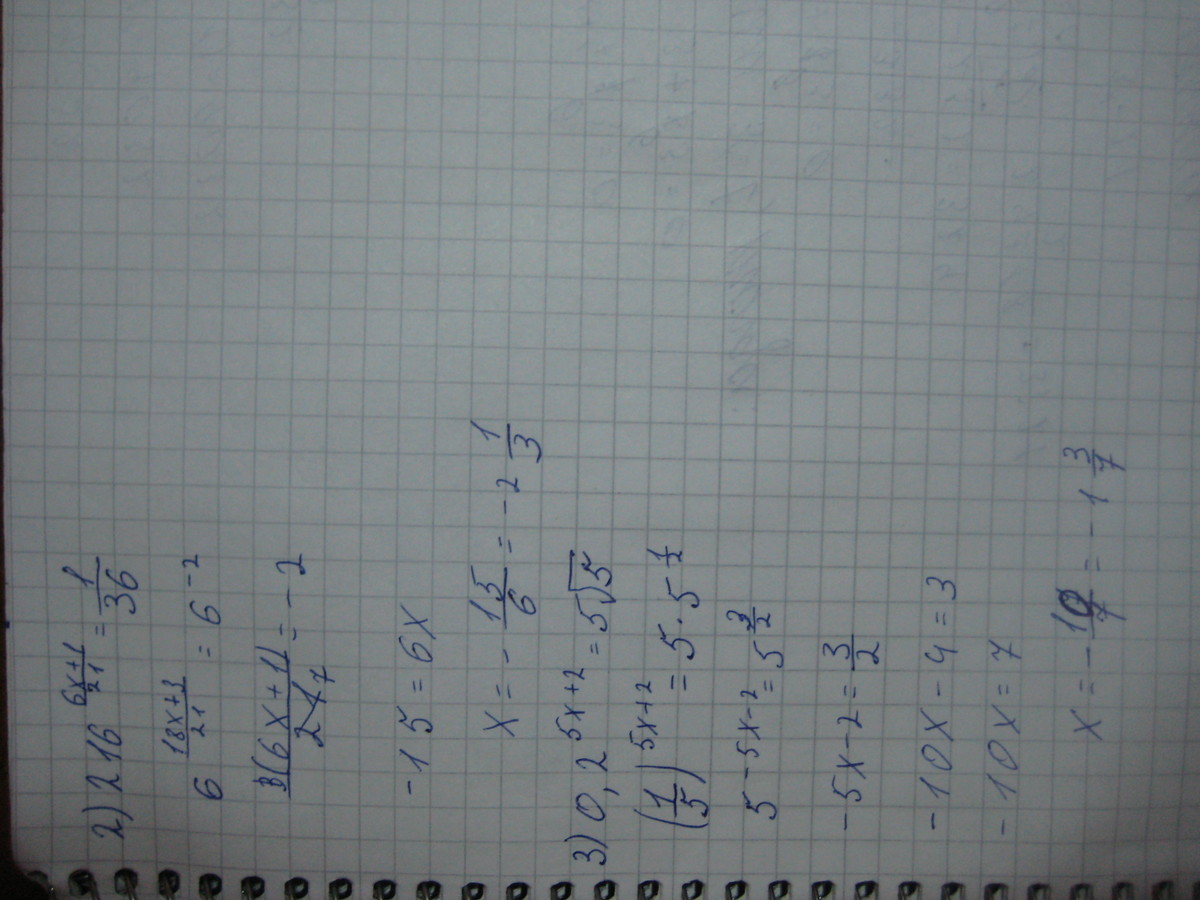 2) 216^(6x+1)/21 = 1/36
6^(18x+3)/21 = 6^-2
3(6x+1)/21 7 = -2
-15 = 6x
x = - 15/6 = -2 1/3
3) 0,2^5x+2 = 5√5
(1/5)^5x+2 = 5 · 5^1/2
5^-5x-2 = 5^3/2
-5x-2 = 3/2
-10x-4 = 3
-10x = 7
x = - 10/7 = -1 3/7